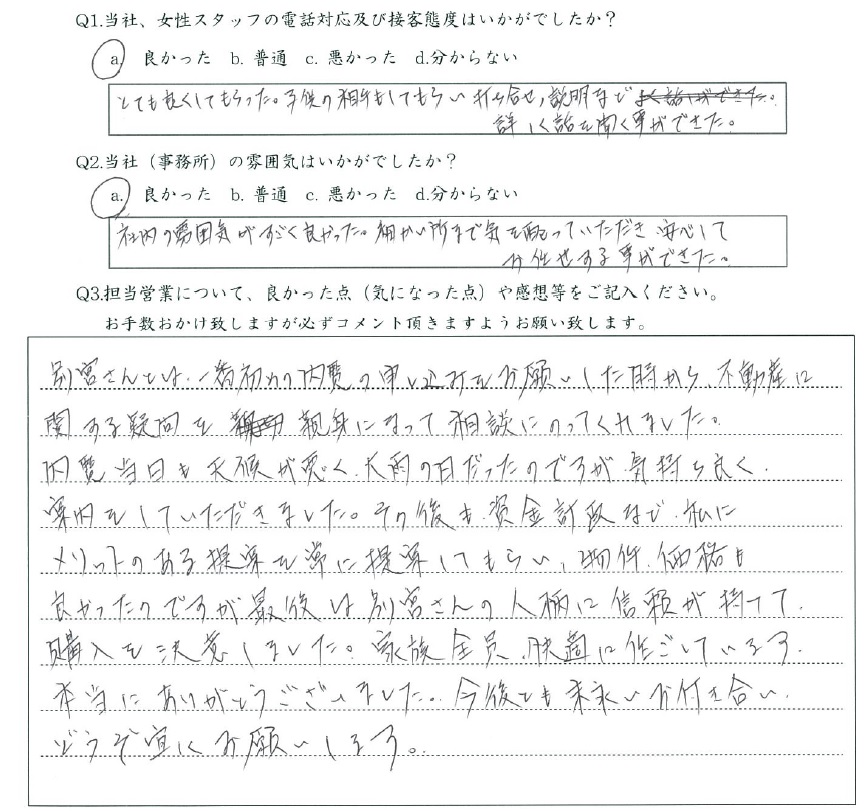 Q1.当社、女性スタッフの電話対応及び接客態度はいかがでしたか？
a. 良かった b. 普通 c. 悪かった d.分からない
とても良くしてもらった。子供の相手もしてもらい打ち合せ、説明など
詳しく話を聞く事ができた。
Q2.当社（事務所）の雰囲気はいかがでしたか？
a. 良かった b. 普通 c. 悪かった d.分からない
社内の雰囲気がすごく良かった。細かい所まで気を配っていただき安心して
お任せする事ができた。
Q3.担当営業について、良かった点（気になった点）や感想等をご記入ください。
お手数おかけ致しますが必ずコメント頂きますようお願い致します。
別宮さんとは、一番初めの内覧の申し込みをお願いした時から、不動産に
関する疑問を 親身になって相談にのってくれました。
内覧当日も天候が悪く、大雨の日だったのですが、気持ち良く、
案内をしていただきました。その後も、資金計画など、私に
メリットのある提案を常に提案してもらい、物件、価格も
良かったのですが最後は別宮さんの人柄に信頼が持てて、
購入を決意しました。家族全員、快適に住ごしています。
本当にありがとうございました。今後とも末永いお付き合い、
どうぞ宜しくお願いします。